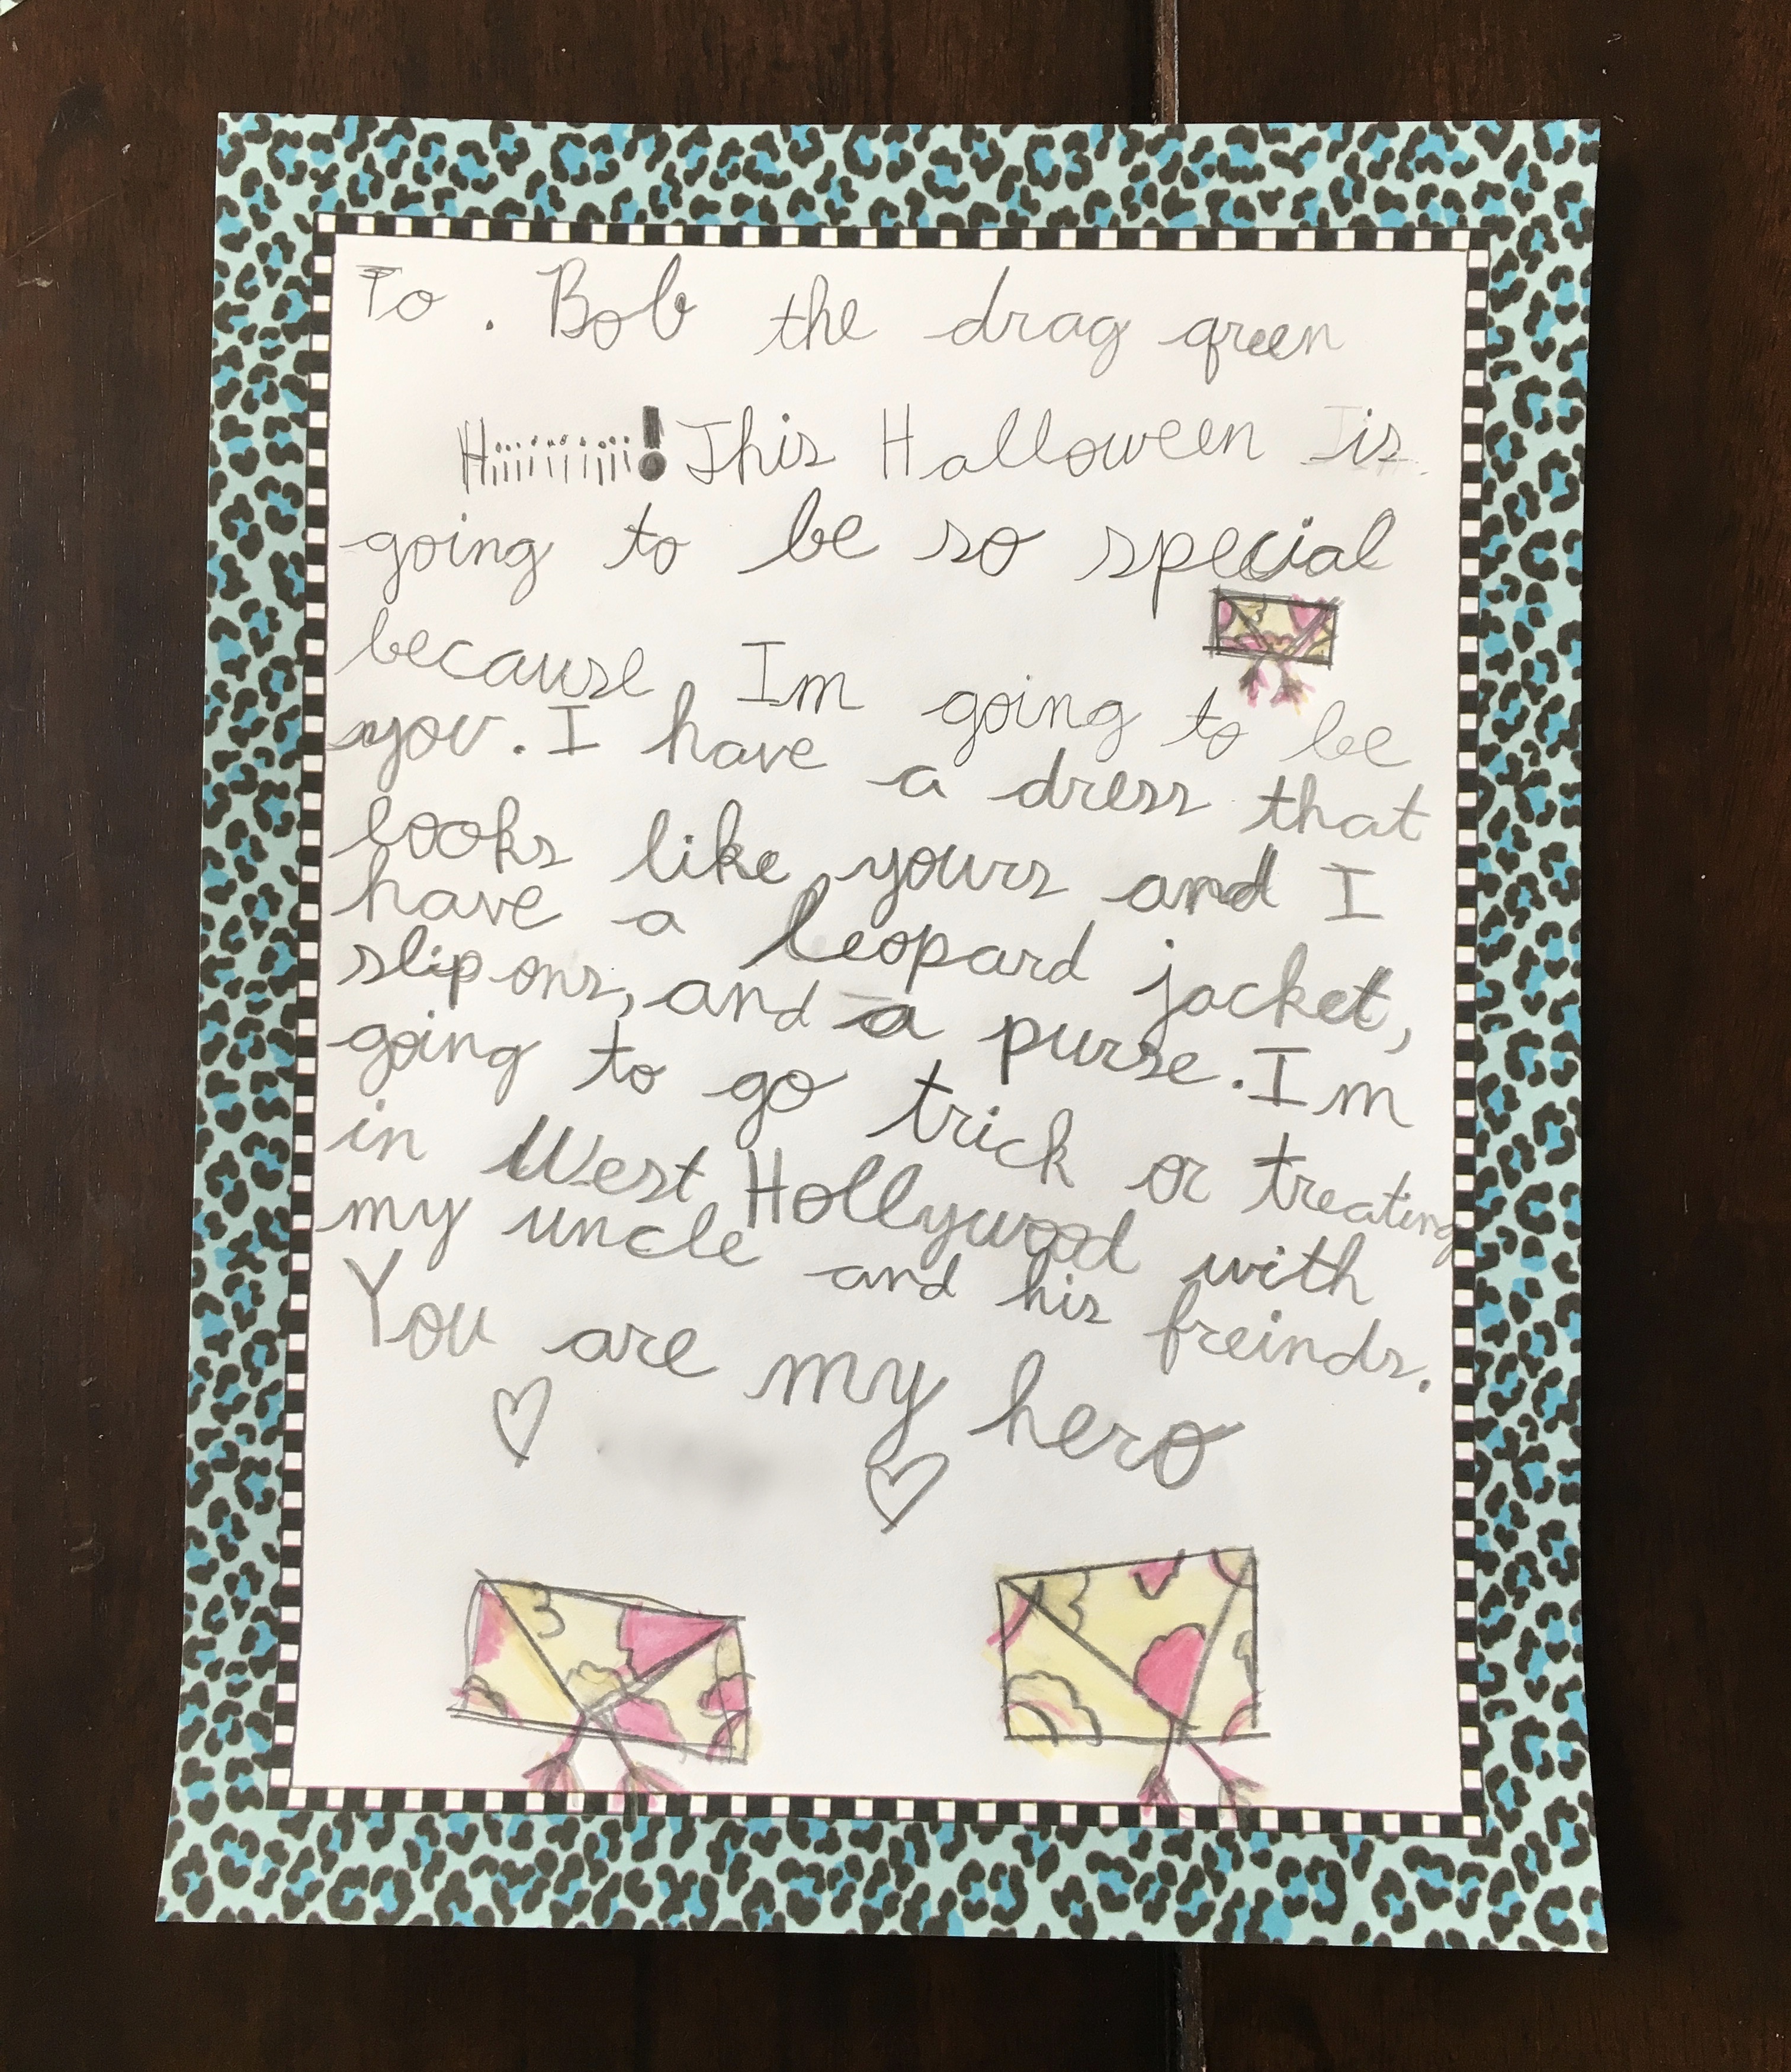 To . Bob the drag queen
Hiiiiiiiiii! This Halloween is
going to be so special
because Im going to be
you. I have a dress that
looks like yours and I
have a leopard jacket,
slip ons, and a purse. Im
going to go trick or treating
in West Hollywood with
my uncle and his freinds.
You are my hero